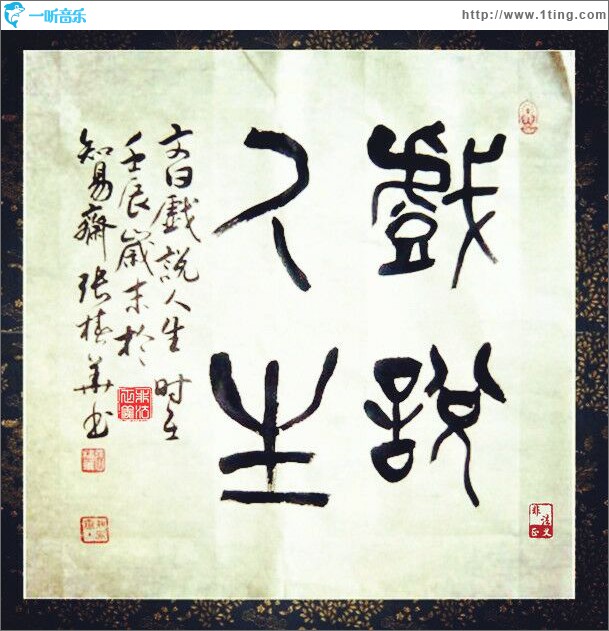 一听音乐
http://www.1ting.com
戲說
人生
文曰戲說人生时在
壬辰歲末於
知易齋張桂華书